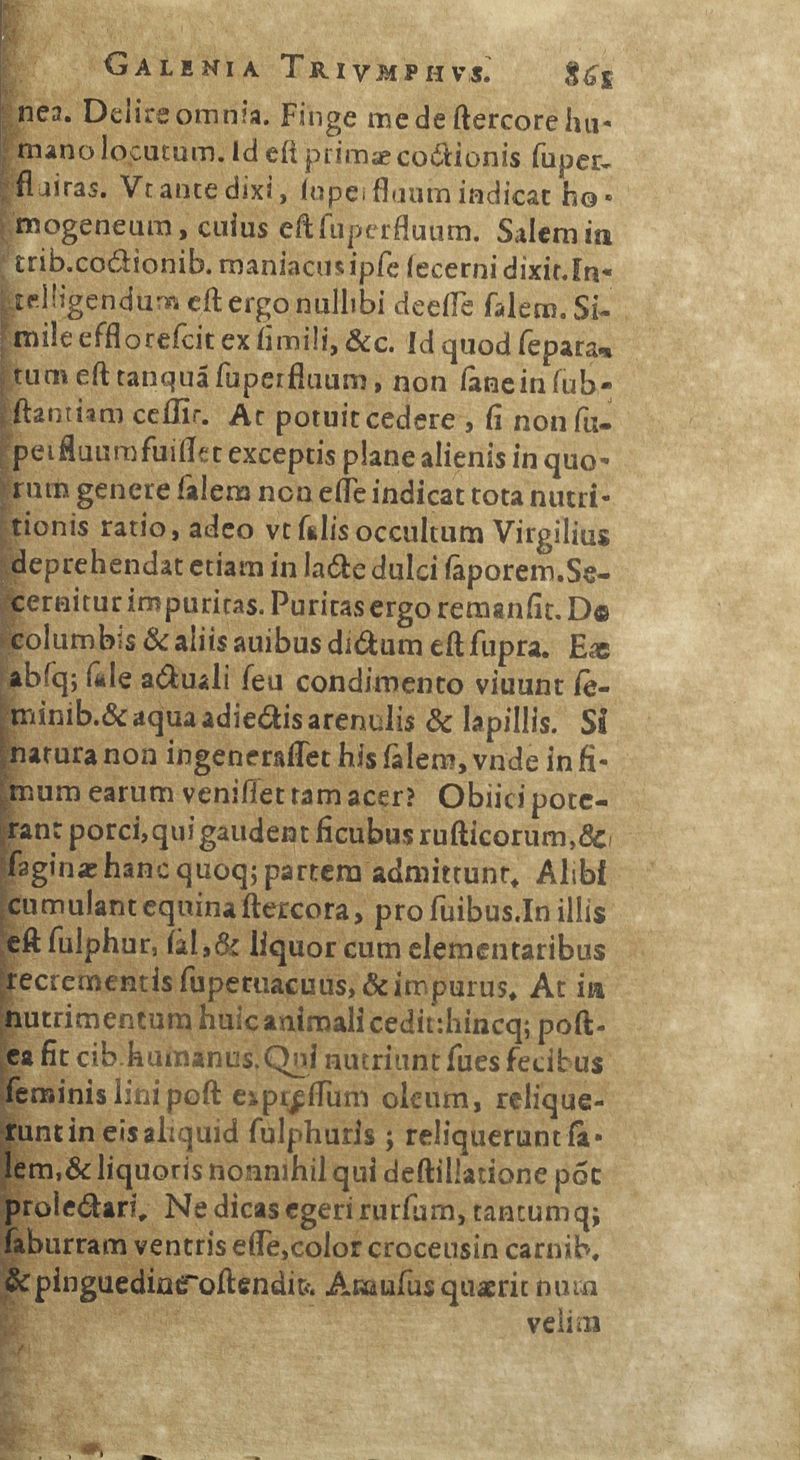 GALENIA TRIVMPHVS. 861
nea. Delire omnia. Finge me de ſtercore hu-
mano locutum. Id eſt primæ coctionis ſuper-
fluitas. Vt ante dixi, ſuperfluum indicat ho-
mogeneum, cuius eſt ſuperfluum. Salem in
trib. coctionib. maniacus ipſe ſecerni dixit. In-
telligendum eſt ergo nullibi deeſſe ſalem. Si-
mile effloreſcit ex ſimili, &c. Id quod ſepara-
tum eſt tanquã ſuperfluum, non ſane in ſub-
ſtantiam ceſſit. At potuit cedere, ſi non ſu-
perfluum fuiſſet exceptis plane alienis in quo-
rum genere ſalem non eſſe indicat tota nutri-
tionis ratio, adeo vt ſalis occultum Virgilius
deprehendat etiam in lacte dulci ſaporem. Se-
cernitur impuritas. Puritas ergo remanſit. De
columbis & aliis auibus dictum eſt ſupra. Eæ
abſq; ſale actuali ſeu condimento viuunt ſe-
minib. & aqua adiectis arenulis & lapillis. Si
natura non ingeneraſſet his ſalem, vnde in fi-
mum earum veniſſet tam acer? Obiici pote-
rant porci, qui gaudent ficubus ruſticorum, &
ſaginæ hanc quoq; partem admittunt. Alibi
cumulant equina ſtercora, pro ſuibus. In illis
eſt ſulphur, ſal, & liquor cum elementaribus
recrementis ſuperuacuus, & impurus. At in
nutrimentum huic animali cedit: hincq; poſt-
ea fit cib. humanus. Qui nutriunt ſues fecibus
ſeminis lini poſt expreſſum oleum, relique-
runt in eis aliquid ſulphuris; reliquerunt ſa-
lem, & liquoris nonnihil qui deſtillatione põt
prolectari. Ne dicas egeri rurſum, tantumq;
ſaburram ventris eſſe, color croceus in carnib.
& pinguedine oſtendit. Amauſus quærit num
velim